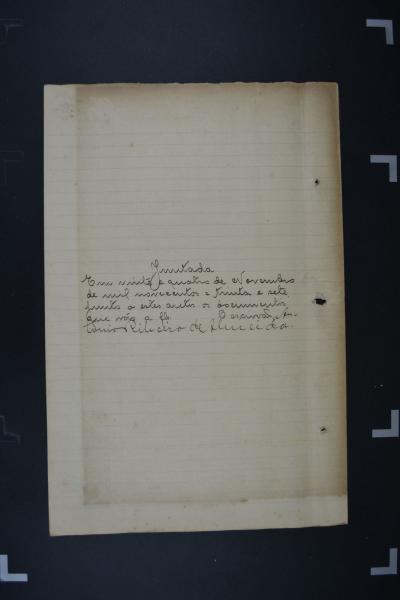 Juntada
Em vinte e quatro de Novembro
de mil novecentos e trinta e sete
junto a estes autos os documentos
que a fls. O escrivão, An-
tonio Ribeiro de Almeida.